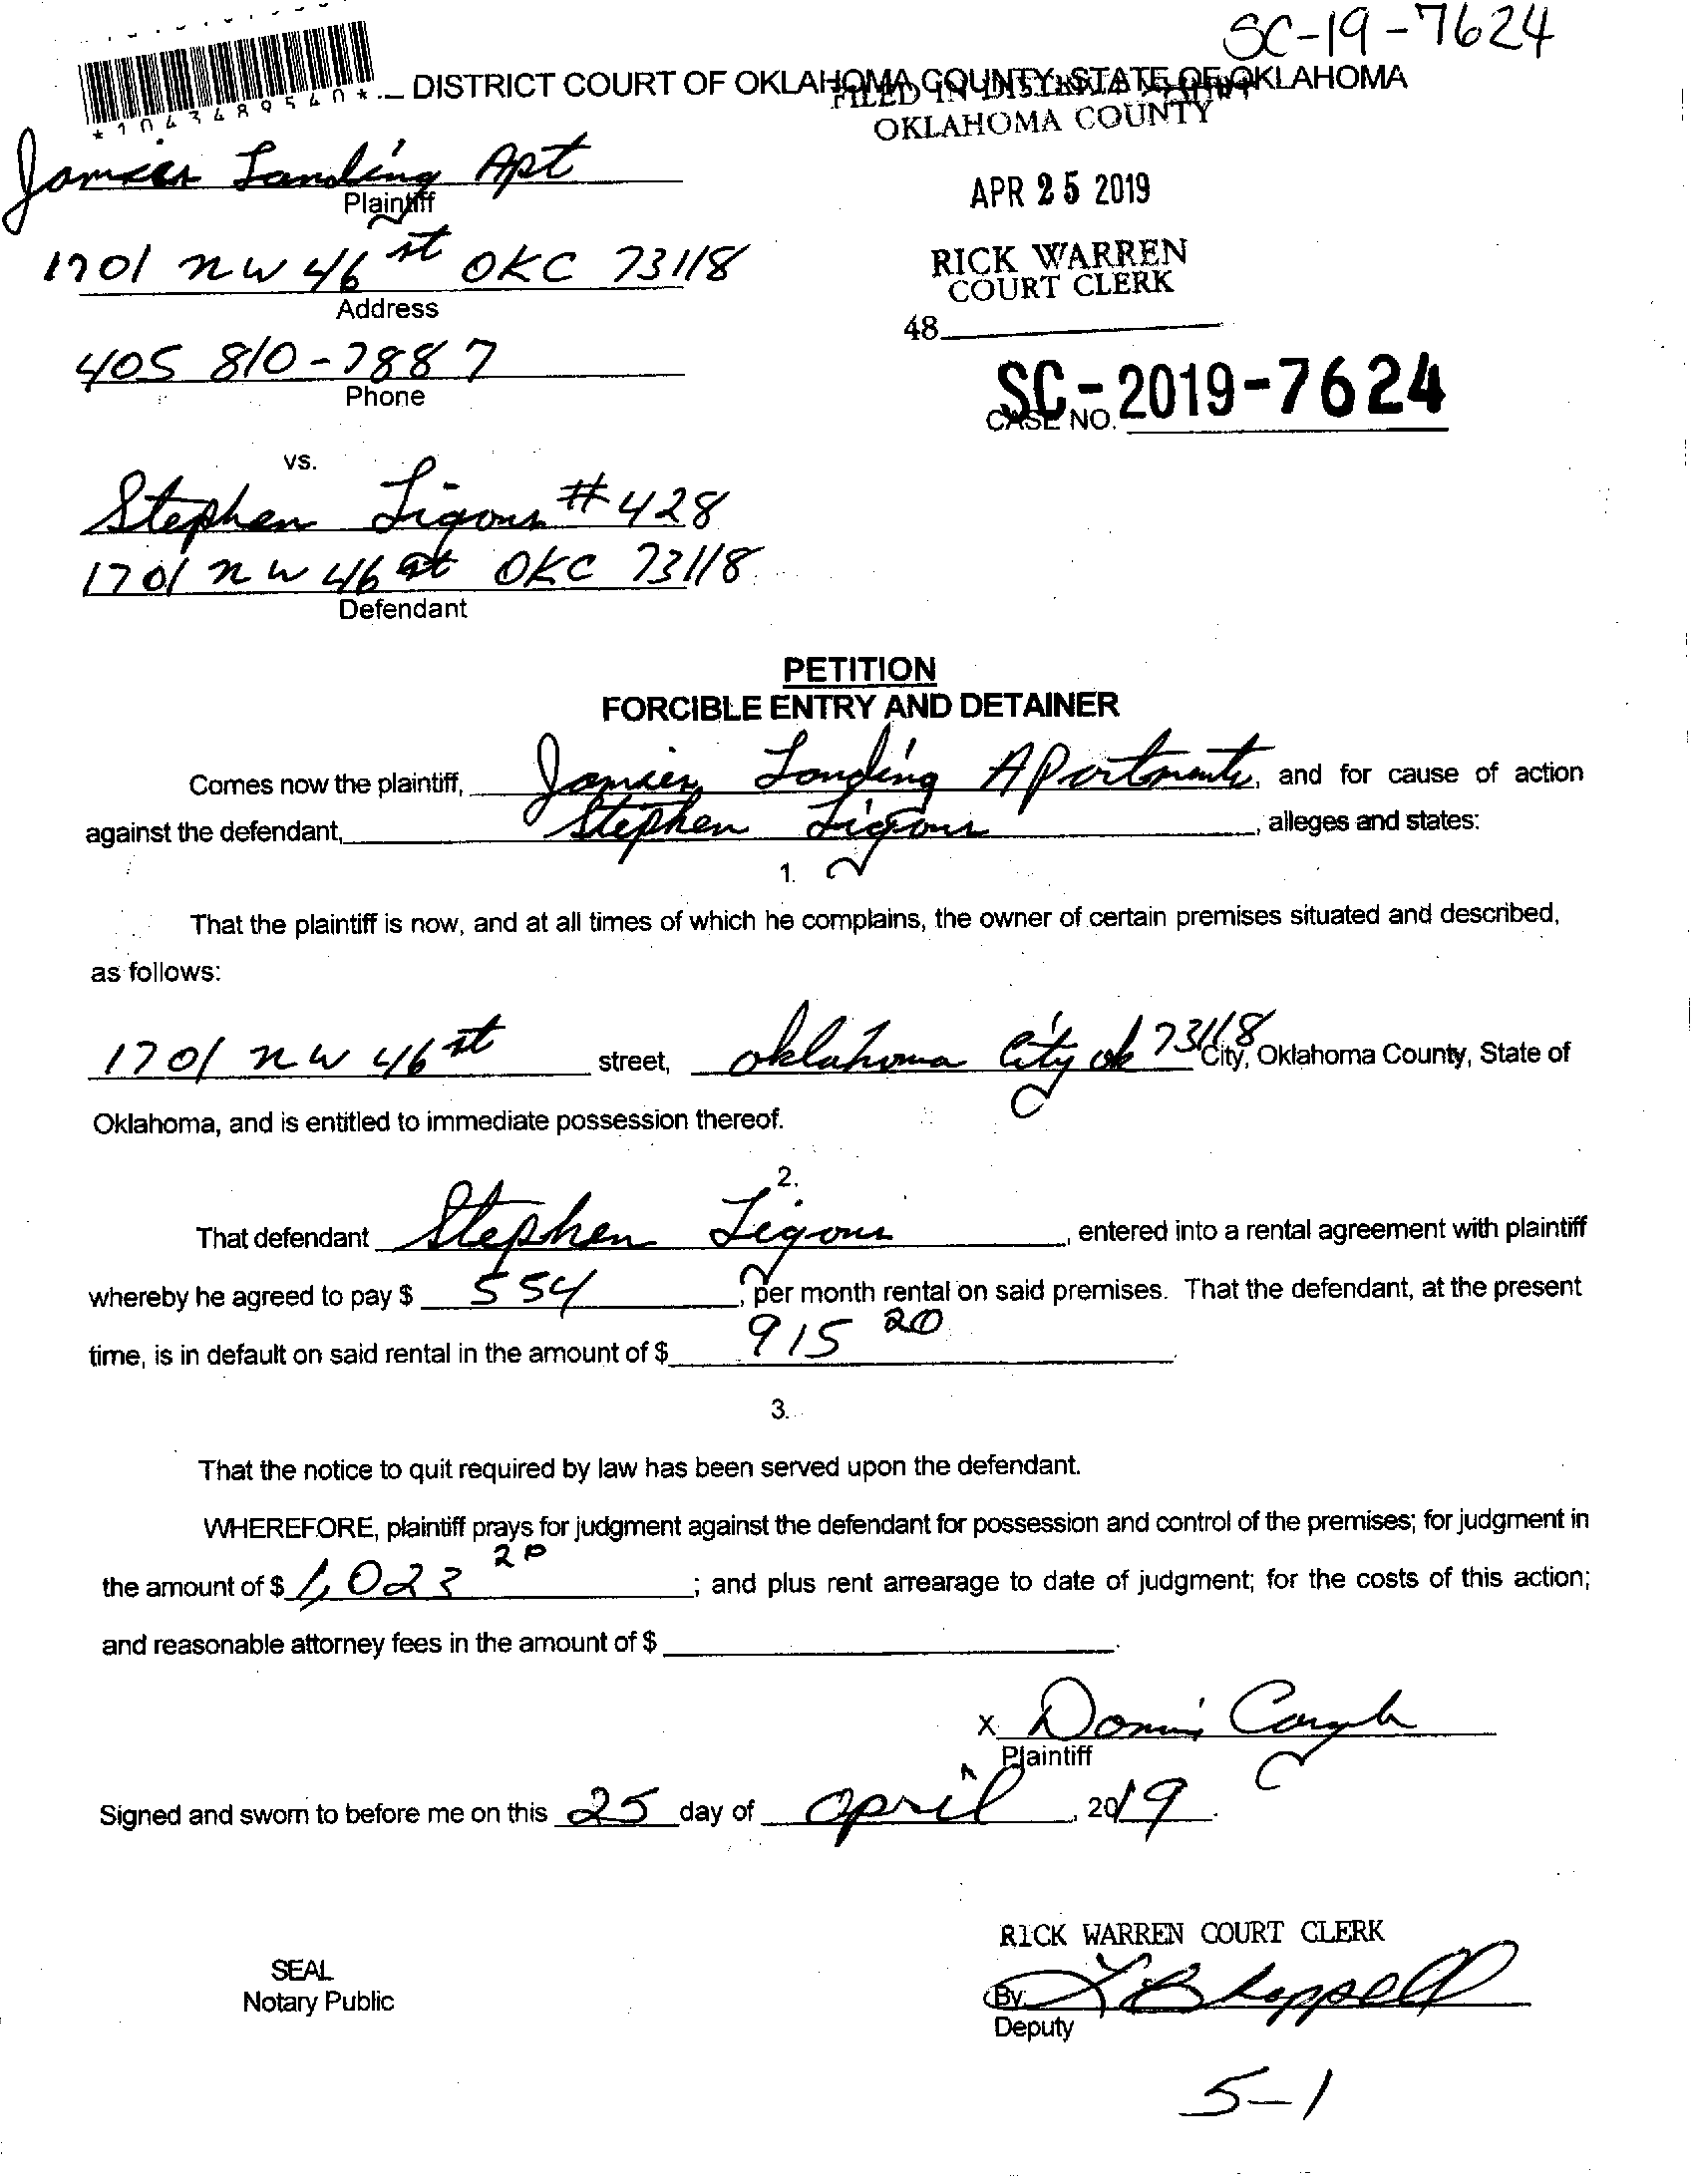 SC-19-7624
*1043489540*
DISTRICT COURT OF OKLAHOMA COUNTY, STATE OF OKLAHOMA
FILED IN DISTRICT COURT
OKLAHOMA COUNTY
Landing Apt
Plaintiff
APR 25 2019
1701 NW 46 st OKC 73118
Address
RICK WARREN
COURT CLERK
48
405 810-7887
Phone
SC-2019-7624
CASE NO.
vs.
Stephen Ligons #428
1701 NW 46 st OKC 73118
Defendant
PETITION
FORCIBLE ENTRY AND DETAINER
Comes now the plaintiff, Landing Apartments, and for cause of action
against the defendant, Stephen Ligons, alleges and states:
1.
That the plaintiff is now, and at all times of which he complains, the owner of certain premises situated and described,
as follows:
1701 NW 46 st street, Oklahoma City ok 73118 City, Oklahoma County, State of
Oklahoma, and is entitled to immediate possession thereof.
2.
That defendant Stephen Ligons, entered into a rental agreement with plaintiff
whereby he agreed to pay $ 554, per month rental on said premises. That the defendant, at the present
time, is in default on said rental in the amount of $ 915 20.
3.
That the notice to quit required by law has been served upon the defendant.
WHEREFORE, plaintiff prays for judgment against the defendant for possession and control of the premises; for judgment in
the amount of $ 1,023 20; and plus rent arrearage to date of judgment; for the costs of this action;
and reasonable attorney fees in the amount of $ .
X
Plaintiff
Signed and sworn to before me on this 25 day of April, 2019.
RICK WARREN COURT CLERK
SEAL
Notary Public
By:
Deputy
5-1